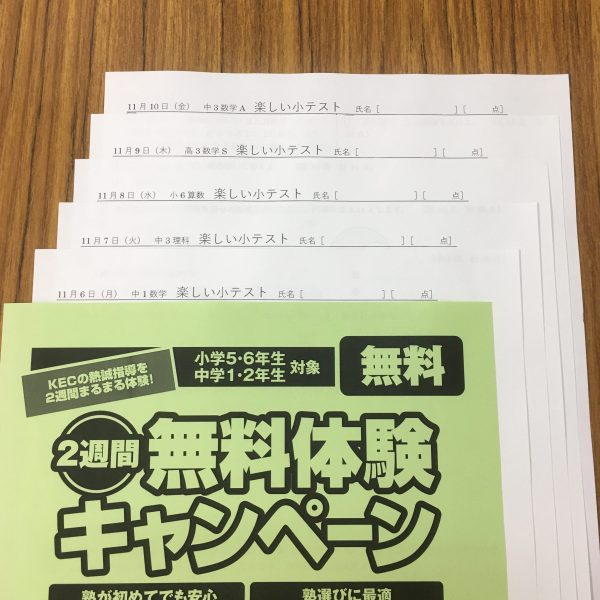 11月10日（金） 中3数学A 楽しい小テスト 氏名 [ ] [ 点]
11月9日（木） 高3数学S 楽しい小テスト 氏名 [ ] [ 点]
11月8日（水） 小6算数 楽しい小テスト 氏名 [ ] [ 点]
11月7日（火） 中3理科 楽しい小テスト 氏名 [ ] [ 点]
11月6日（月） 中1数学 楽しい小テスト 氏名 [ ] [ 点]
KECの熱誠指導を
2週間まるまる体験!
小学5・6年生
中学1・2年生
対象
無料
2週間
無料体験
キャンペーン
塾が初めてでも安心
塾選びに最適